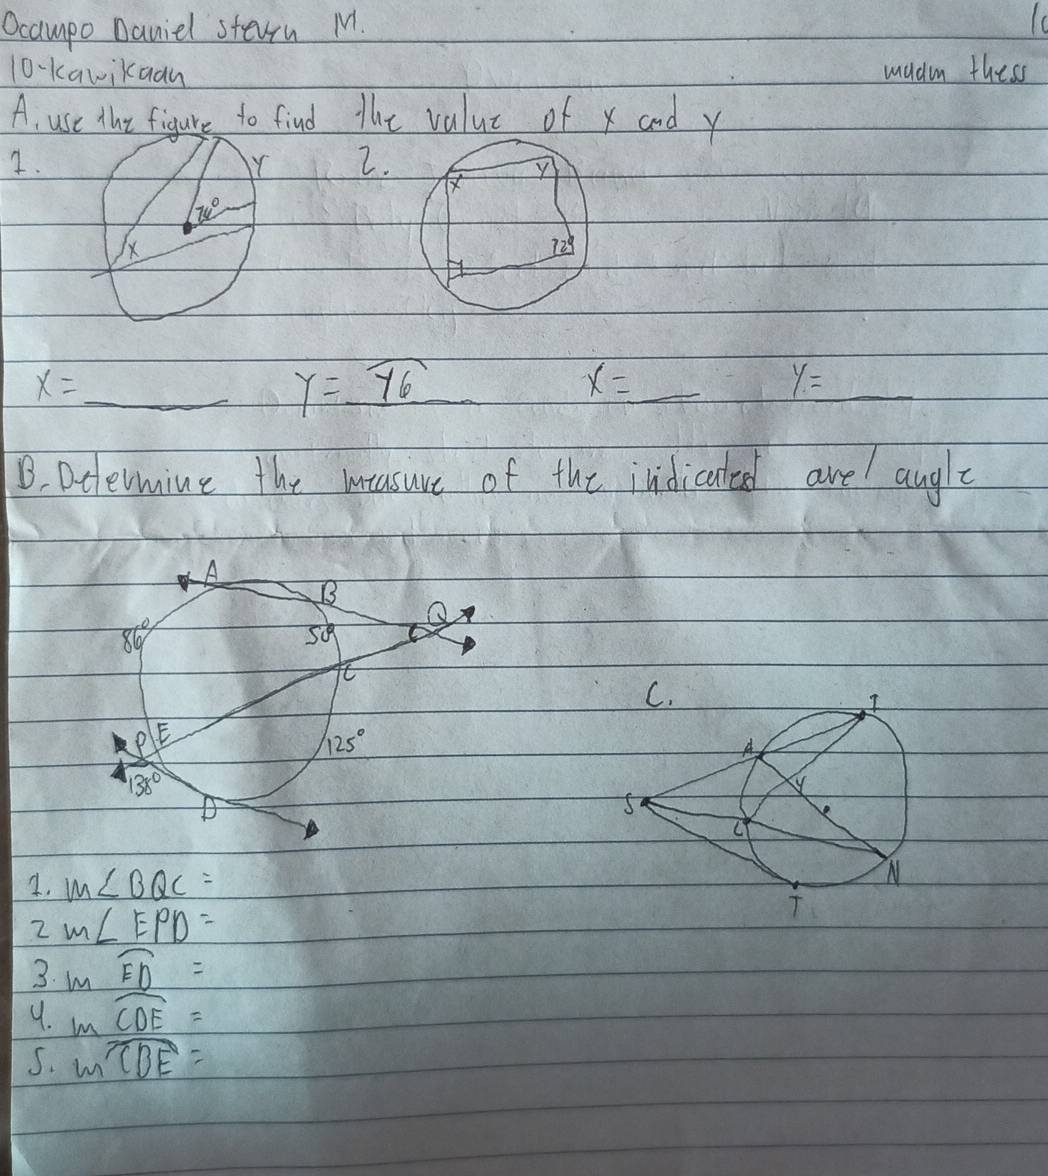 Ocampo Daniel Steven M.
10-kawikaan
madm thess
A. use the figure to find the value of x and y
1.
Y
74°
X
2.
X
Y
72°
X = ______ Y = 76 X = ___ Y = ____
B. Determine the measure of the indicated are/ angle
A
B
Q
86°
50°
C
P E
125°
138°
D
C.
T
A
4
S
L
N
T
1. m∠BQC =
2 m∠EPD =
3. m ED =
4. m CDE =
5. m CBE =